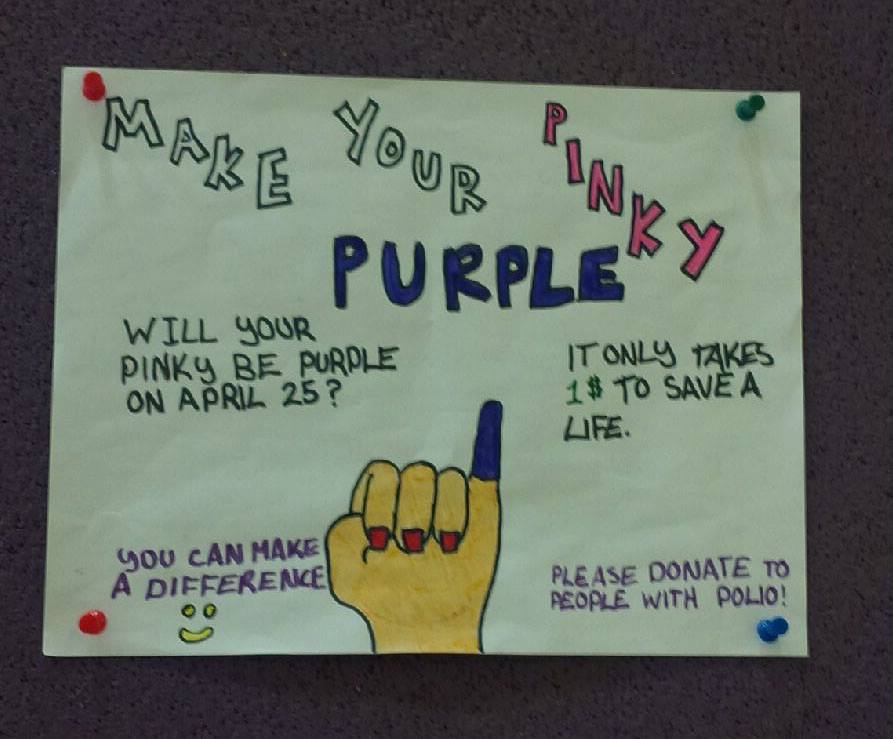 MAKE YOUR PINKY
PURPLE
WILL YOUR
PINKY BE PURPLE
ON APRIL 25?
IT ONLY TAKES
1$ TO SAVE A
LIFE.
YOU CAN MAKE
A DIFFERENCE
PLEASE DONATE TO
PEOPLE WITH POLIO!